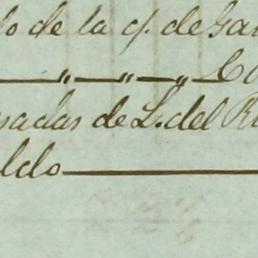 lo de la q. de Ga
" " " Co
sadas de L. del R
ldo